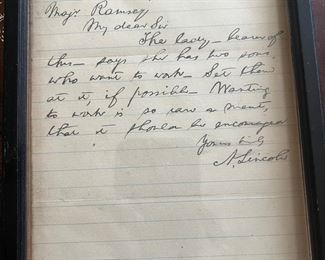 Majr. Ramsey
My dear Sir
The lady - bearer of
this - says she has two sons
who want to work - Set them
at it, if possible - Wanting
to work is so rare a merit,
that it should be encouraged
Yours truly
A. Lincoln